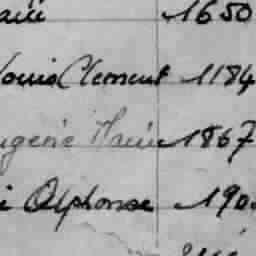 1650
Louis Clement 1184
Eugenie Marie 1867
Alphonse 190